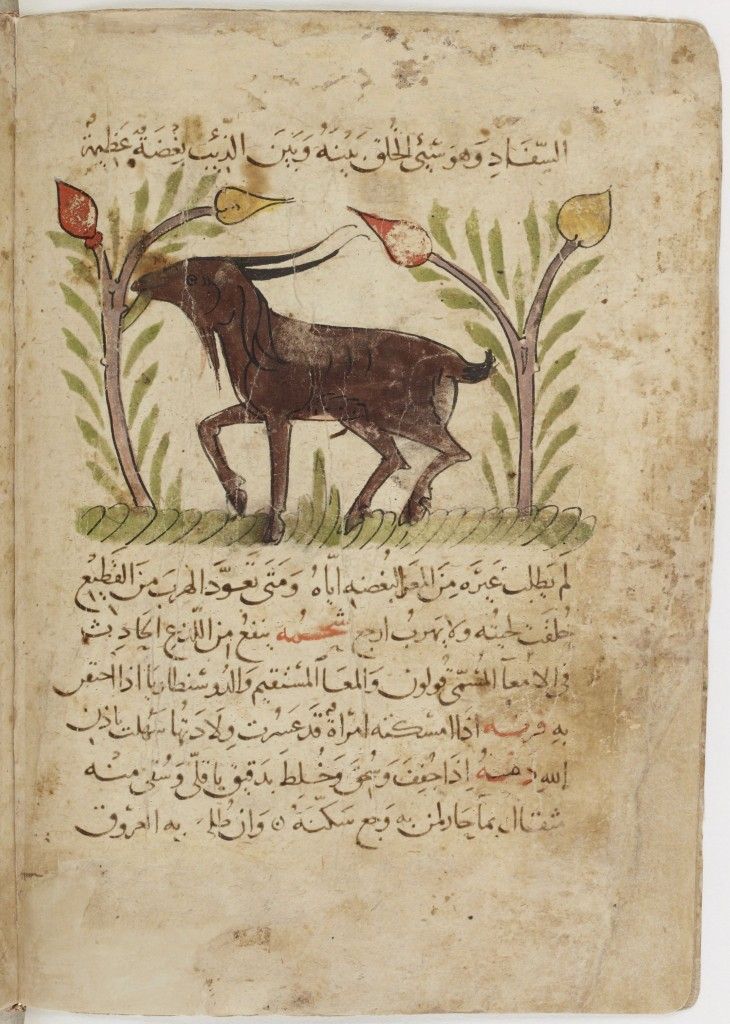 السِّفَادِ وَهوَ سَيّئُ الخُلُقِ بَيْنَهُ وَبَيْنَ الذِّئْبِ بِغْضَةٌ عَظِيمَةٌ
لم يَطلب غيَره مِنَ المَعز لبُغضهِ ايّاهُ وَمَتَى تَعوَّدَ الهرَبَ مِنَ القَطيْعِ
حُلقَت لحيَتُه وَلا يَهربُ ارجع شحمه ينفعُ مِنَ اللَّذع الحَادِث
في الامعآ المُسَمَّى قُولون وَالمِعَآ المُسْتَقيم وَالدُوسنطاريَا اذا احتقن
بهِ قَرنُه اذَا امسَكته امرَاةٌ قد عسرت وِلادَتُها سَهلت باذن
الله دَمُهُ إذَا جُفِّفَ وَسُحِقَ وَخُلطَ بدَقيق بَاقِلّى وَسُقى مِنْه
مثقال بمآ حار لمن به وجع سَكّنَهُ وَان طُلِىَ بهِ العرُوق